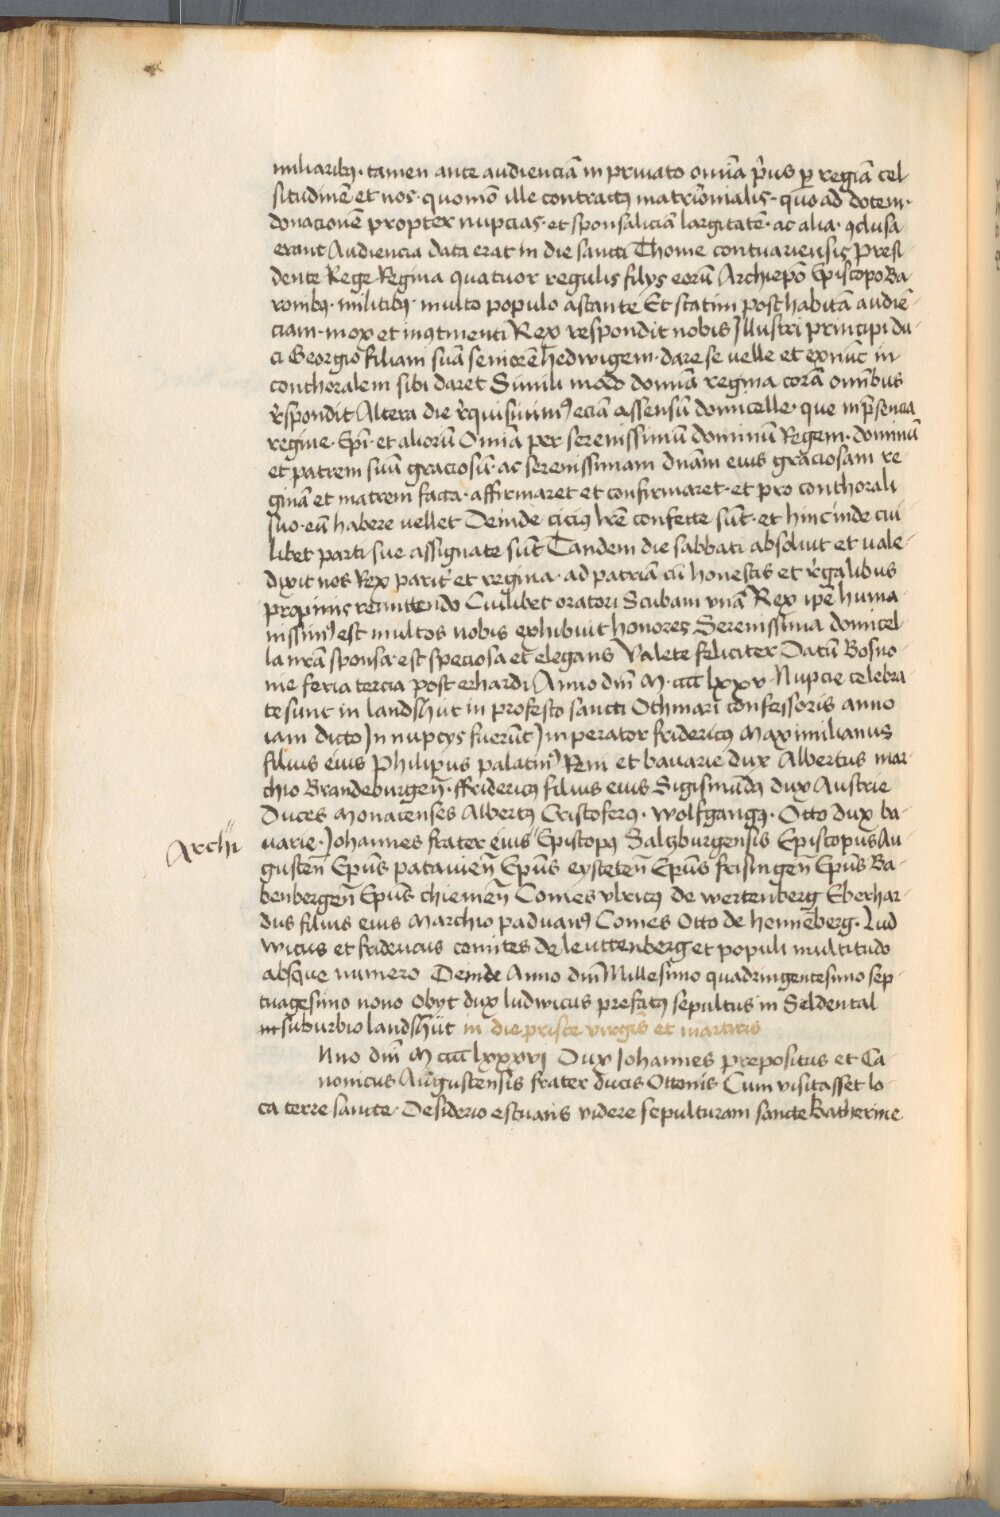 miliaribꝫ · tamen ante audienciā in priuato omīa p̄us ꝑ regiā cel
situdinē et nos · quomō ille contractꝰ matrīonialis · quo ad dotem ·
donacionē propter nupcias · et sponsaliciā largitatē · ac alia · ꝯclusa
erant Audiencia data erat in die sancti Thome contuariensis Presi-
dente Rege Regina quatuor regulis filijs eorū Archiepō Episcopo Ba-
ronibꝫ · militibꝫ multo populo astante Et statim post habitā audiē-
ciam · mox et in ꝯtinenti Rex respondit nobis Illustri principi du-
ci Georgio filiam suā seniorē hedwigem · dare se uelle et ex nūc in
conthoralem sibi daret Simili modo domīa regina corā omībus
rn̄spondit Altera die requisiuimꝰ eciā assensū domicelle · que in p̄sencia
regine · Epī · et aliorū Omīa per serenissimū dominū Regem · dominū
et patrem suū graciosū · ac serenissimam dnām eius graciosam re
ginā et matrem facta · affirmaret et confirmaret · et pro conthorali
suo · eū habere uellet Deinde cicius lr̄e confecte sūt · et hincinde cui
libet parti sue assignate sūt Tandem die sabbati absoluit et uale-
dixit nos Rex parit̄ et regina · ad patriā cū honestis et regalibus
propinis remittendo Cuilibet oratori Scubam vnā Rex ipē huma
nissimꝰ est multos nobis exhibuit honores Serenissima domicel-
la nr̄a sponsa est speciosa et elegans Valete feliciter Datū Bosno-
nie feria tercia post erhardi Anno dn̄i M · cccc lxxv · Nupcie celebra
te sunt in landshut in profesto sancti Othmari confessoris anno
iam dicto In nupcijs fuerūt Inperator fridericꝰ Maximilianus
filius eius Philipus palatinꝰ Reni et bauarie dux Albertus mar-
chio Brandeburgeñ · ffridericꝰ filius eius Sigismūdꝰ dux Austrie
Duces Monacenses Albertꝰ Cristoferꝰ · Wolfgangꝰ · Otto dux ba-
uarie · Johannes frater eius " Episcopꝰ Saltzburgensis Episcopus Au-
Archi "
gusteñ Epūs patauieñ Epūs eysteteñ Epūs frisingeñ Epūs Ba-
benbergeñ Epūs chiemeñ Comes vlricꝰ de wertenberg Eberhar-
dus filius eius Marchio paduanꝰ Comes Otto de hennēberg · Lud
wicus et fridericus comites de leuttenberg et populi multitudo
absque numero Deinde Anno dn̄i Millesimo quadringentesimo sep-
tuagesimo nono obyt dux ludwicus prefatꝰ sepultus in Seldental
in suburbio landshüt in die prisce virgīs et martiris
nno dn̄i M cccc lxxxvi Dux Johannes prepositus et Ca-
nonicus Augustensis frater ducis Ottonis Cum visitasset lo-
ca terre sancte · Desiderio estuans videre sepulturam sancte Katherine